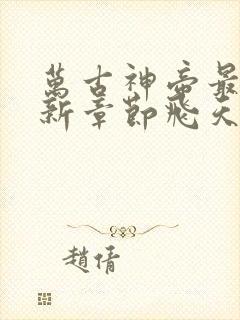 萬古神帝最
新章節飛天
趙倩